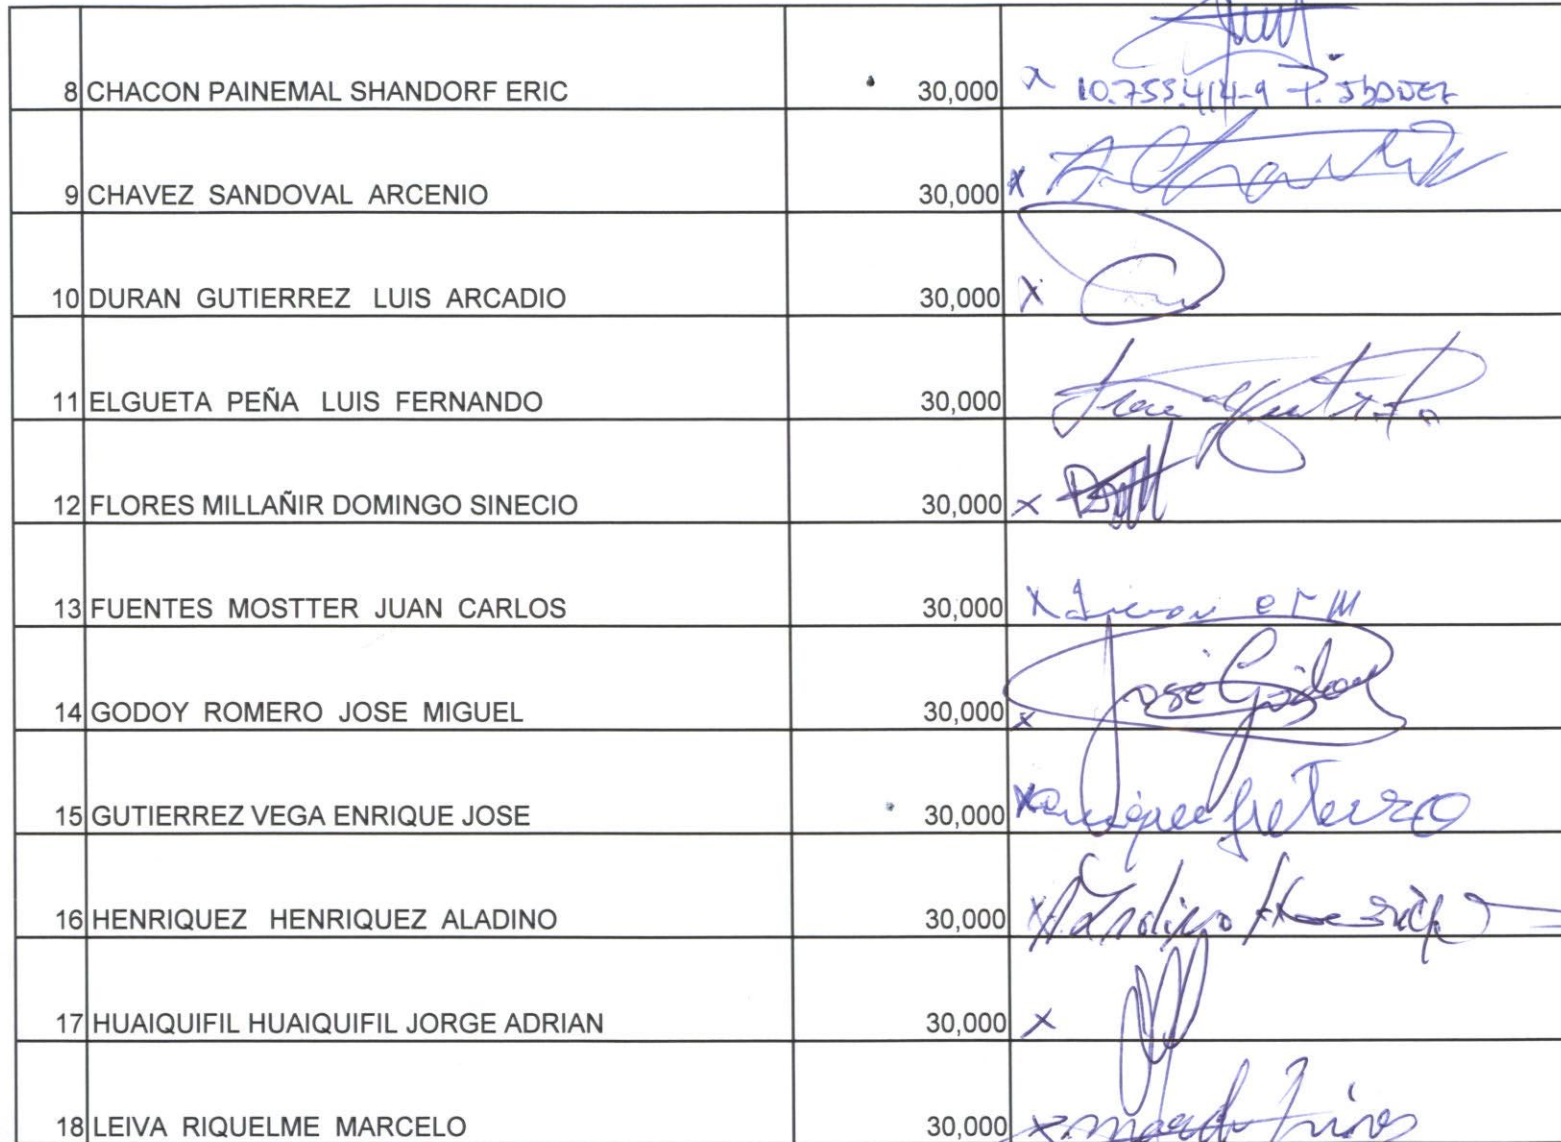 8 CHACON PAINEMAL SHANDORF ERIC 30,000 x 10.755.414-9 P.
9 CHAVEZ SANDOVAL ARCENIO 30,000 x
10 DURAN GUTIERREZ LUIS ARCADIO 30,000 x
11 ELGUETA PEÑA LUIS FERNANDO 30,000
12 FLORES MILLAÑIR DOMINGO SINECIO 30,000 x
13 FUENTES MOSTTER JUAN CARLOS 30,000 x
14 GODOY ROMERO JOSE MIGUEL 30,000 x José Godoy
15 GUTIERREZ VEGA ENRIQUE JOSE 30,000 x
16 HENRIQUEZ HENRIQUEZ ALADINO 30,000 x
17 HUAIQUIFIL HUAIQUIFIL JORGE ADRIAN 30,000 x
18 LEIVA RIQUELME MARCELO 30,000 x